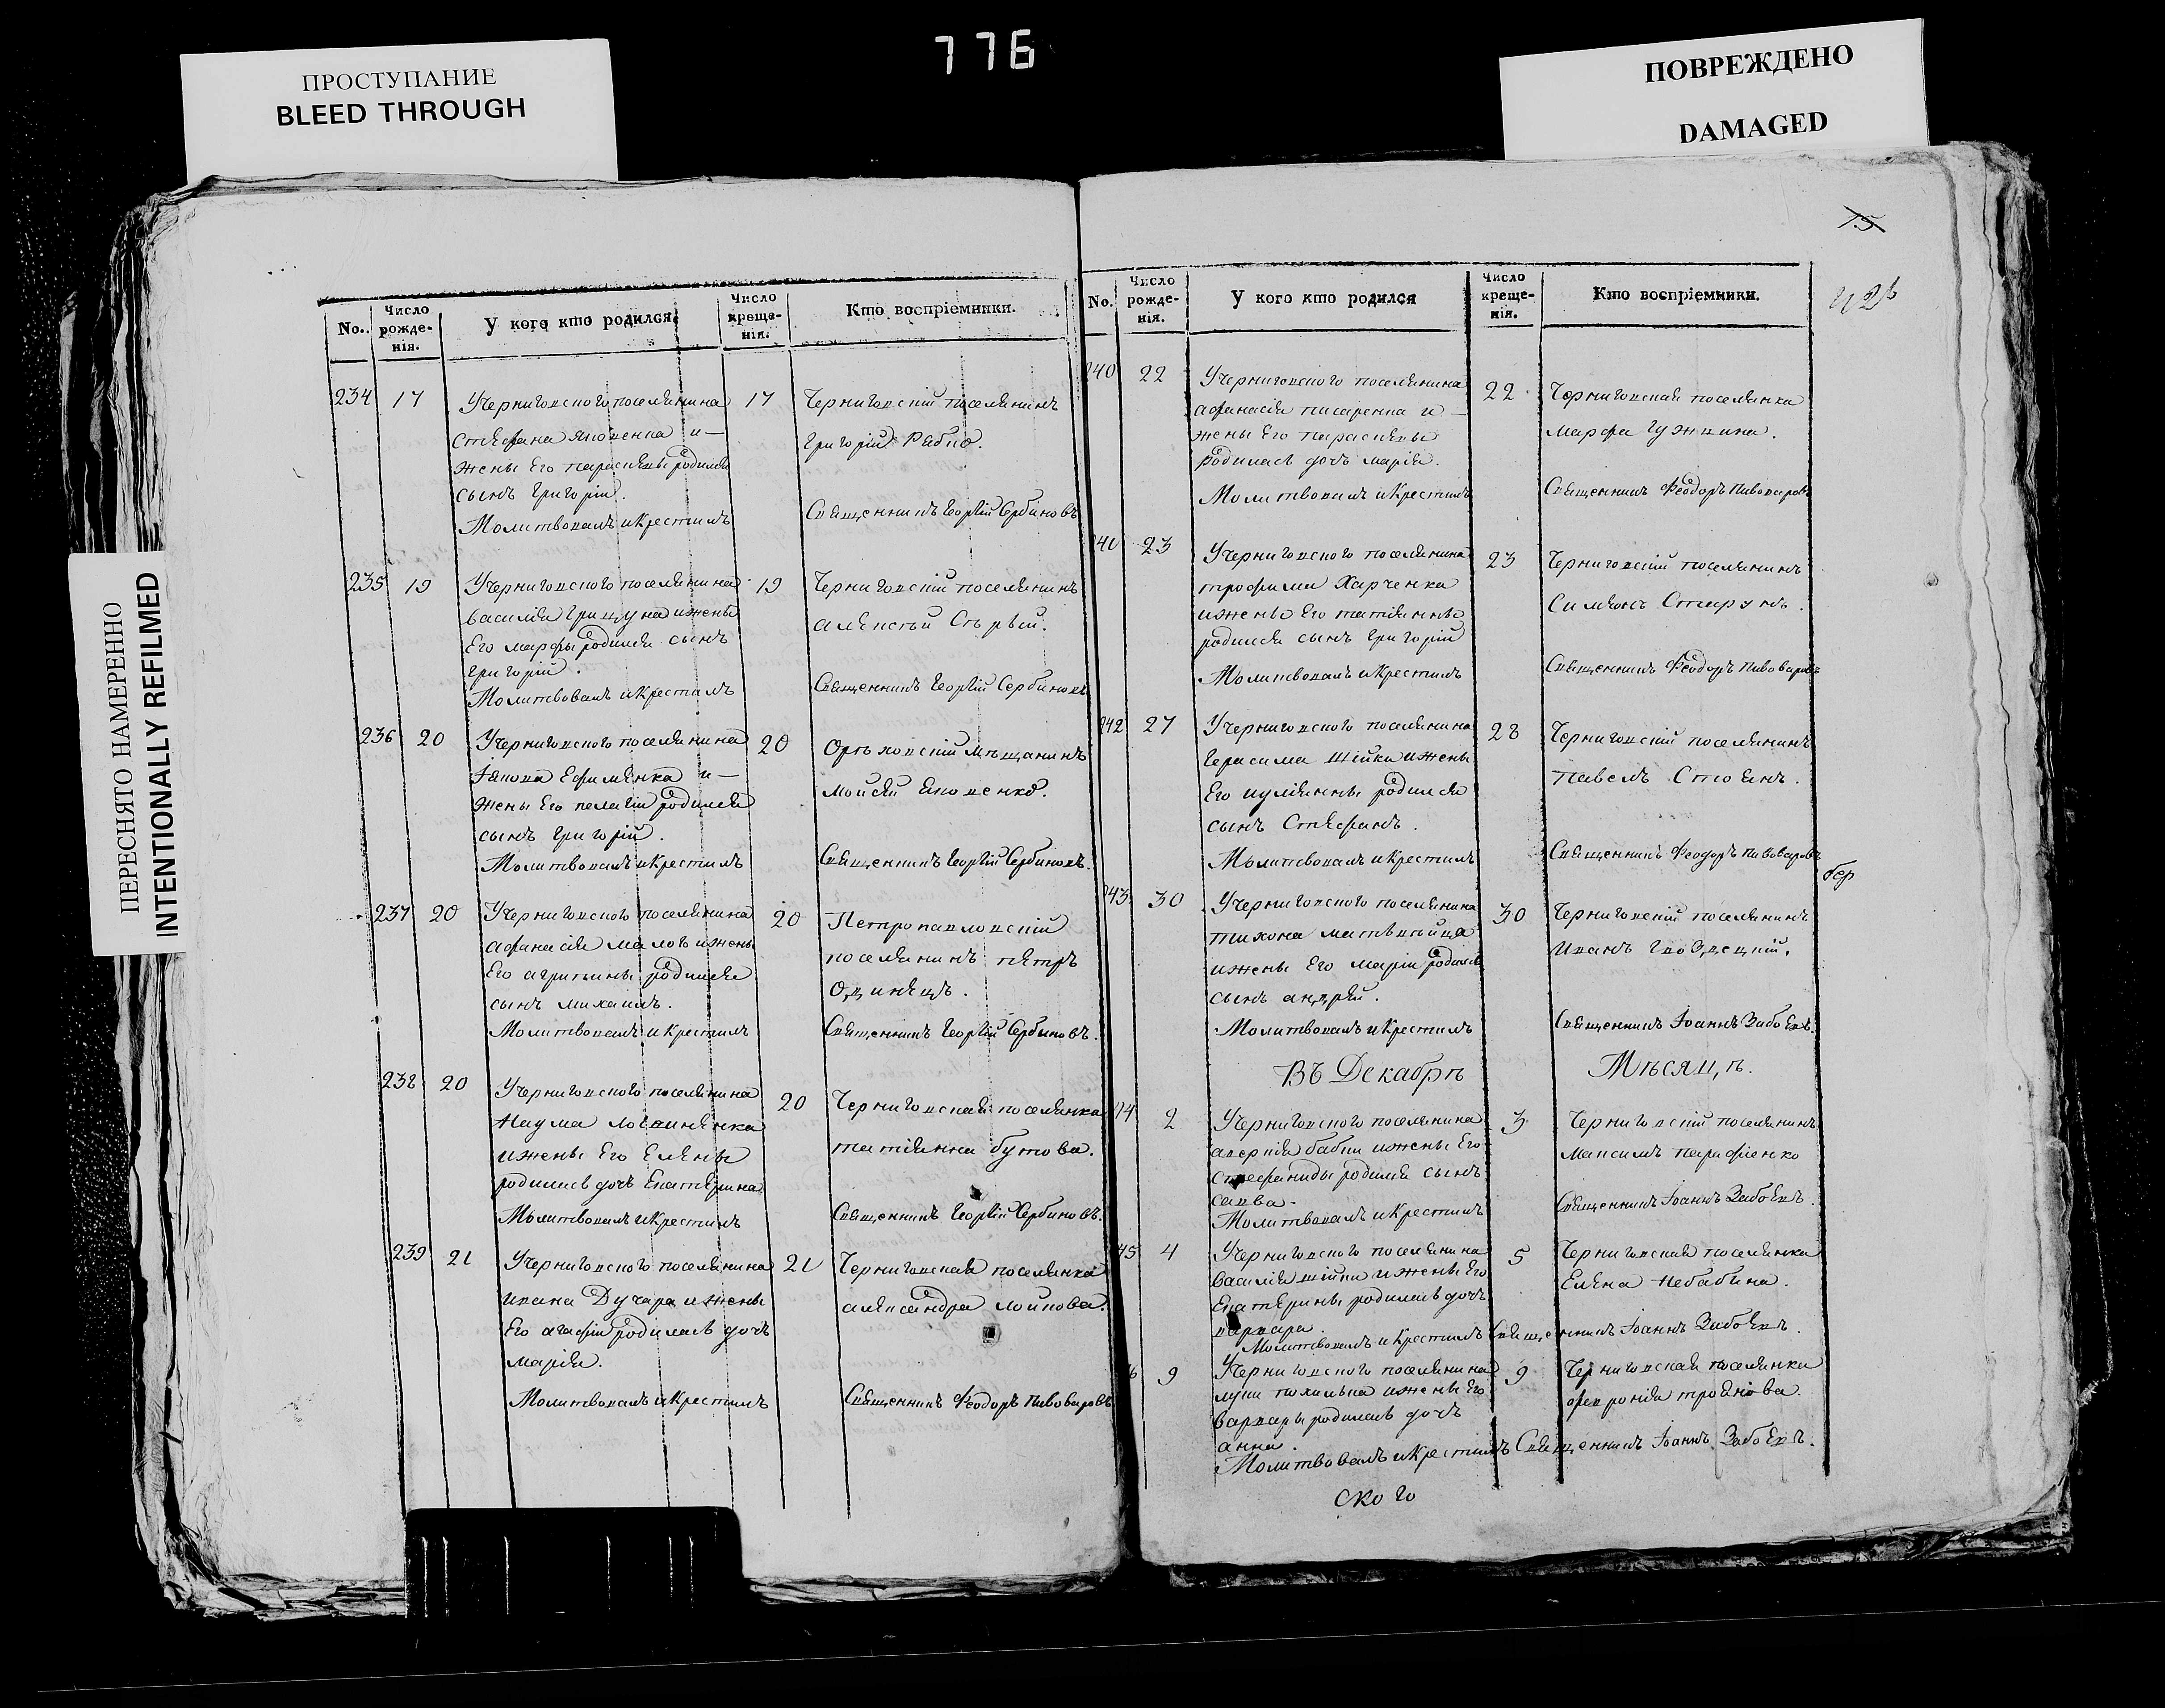 776
ПРОСТУПАНИЕ
BLEED THROUGH
ПОВРЕЖДЕНО
DAMAGED
ПЕРЕСНЯТО НАМЕРЕННО
INTENTIONALLY REFILMED
75
No. Число рожде- нія. У кого кто родился Число креще- нія. Кто воспріемники.
234 17 Учерниговского поселянина 17 Черниговскій поселянинъ
Стефана Яковенка и Григорій Рябко.
жены Его параскевы родился
сынъ григорій.
Молитвовалъ и Крестилъ Священникъ Георгій Сербиновъ
235 19 Учерниговского поселянина 19 Черниговскій поселянинъ
василія Грицуна ижены алексѣй Сѣрый.
Его марфы родился сынъ
григорій.
Молитвовалъ и Крестилъ Священникъ Георгій Сербиновъ
236 20 Учерниговского поселянина 20 Орѣховскій мѣщанинъ
Іакова Ефименка и Мойсей Яковенко.
жены Его пелагіи родился
сынъ григорій.
Молитвовалъ и Крестилъ Священникъ Георгій Сербиновъ.
237 20 Учерниговского поселянина 20 Петропавловскій
афанасія малого ижены поселянинъ петръ
Его агрипины родился Одинецъ.
сынъ михаилъ.
Молитвовалъ и Крестилъ Священникъ Георгій Сербиновъ.
238 20 Учерниговского поселянина 20 Черниговская поселянка
Наума Логвиненка татіянна бутова.
ижены Его Елены
родилась дочь Екатерина
Молитвовалъ и Крестилъ Священникъ Георгій Сербиновъ.
239 21 Учерниговского поселянина 21 Черниговская поселянка
ивана Дучара ижены александра лойкова.
Его агафіи родилась дочь
марія.
Молитвовалъ и Крестилъ Священникъ Феодоръ Пивоваровъ
No. Число рожде- нія. У кого кто родился Число креще- нія. Кто воспріемники.
240 22 Учерниговского поселянина 22 Черниговская поселянка
афанасія писаренка и марфа гужвина.
жены Его параскевы
родилась дочь марія.
Молитвовалъ и Крестилъ Священникъ Феодоръ Пивоваровъ
241 23 Учерниговского поселянина 23 Черниговскій поселянинъ
трофима Харченка Симеонъ Старунъ.
ижены Его татіянны
родился сынъ григорій
Молитвовалъ и Крестилъ Священникъ Феодоръ Пивоваровъ
242 27 Учерниговского поселянина 28 Черниговскій поселянинъ
Герасима Шійки ижены павелъ Стоянъ.
Его иуліянны родился
сынъ Стефанъ.
Молитвовалъ и Крестилъ Священникъ Феодоръ Пивоваровъ
бер
243 30 Учерниговского поселянина 30 Черниговскій поселянинъ
тихона матвѣйца иванъ гвоздецкій.
ижены Его маріи родился
сынъ андрей.
Молитвовалъ и Крестилъ Священникъ Іоаннъ Забоевъ.
Въ Декабрѣ Мѣсяцѣ.
44 2 Учерниговского поселянина 3 Черниговскій поселянинъ
аверкія бабки ижены Его максимъ парафіенко
стефаниды родился сынъ
савва.
Молитвовалъ и Крестилъ Священникъ Іоаннъ Забоевъ.
45 4 Учерниговского поселянина 5 Черниговская поселянка
василія шійки ижены Его Елена Небабина.
Екатерины родилась дочь
варвара.
Молитвовалъ и Крестилъ Священникъ Іоаннъ Забоевъ.
6 9 Учерниговского поселянина 9 Черниговская поселянка
луки похилька ижены Его февронія троянова.
варвары родилась дочь
анна.
Молитвовалъ и Крестилъ Священникъ Іоаннъ Забоевъ.
ского